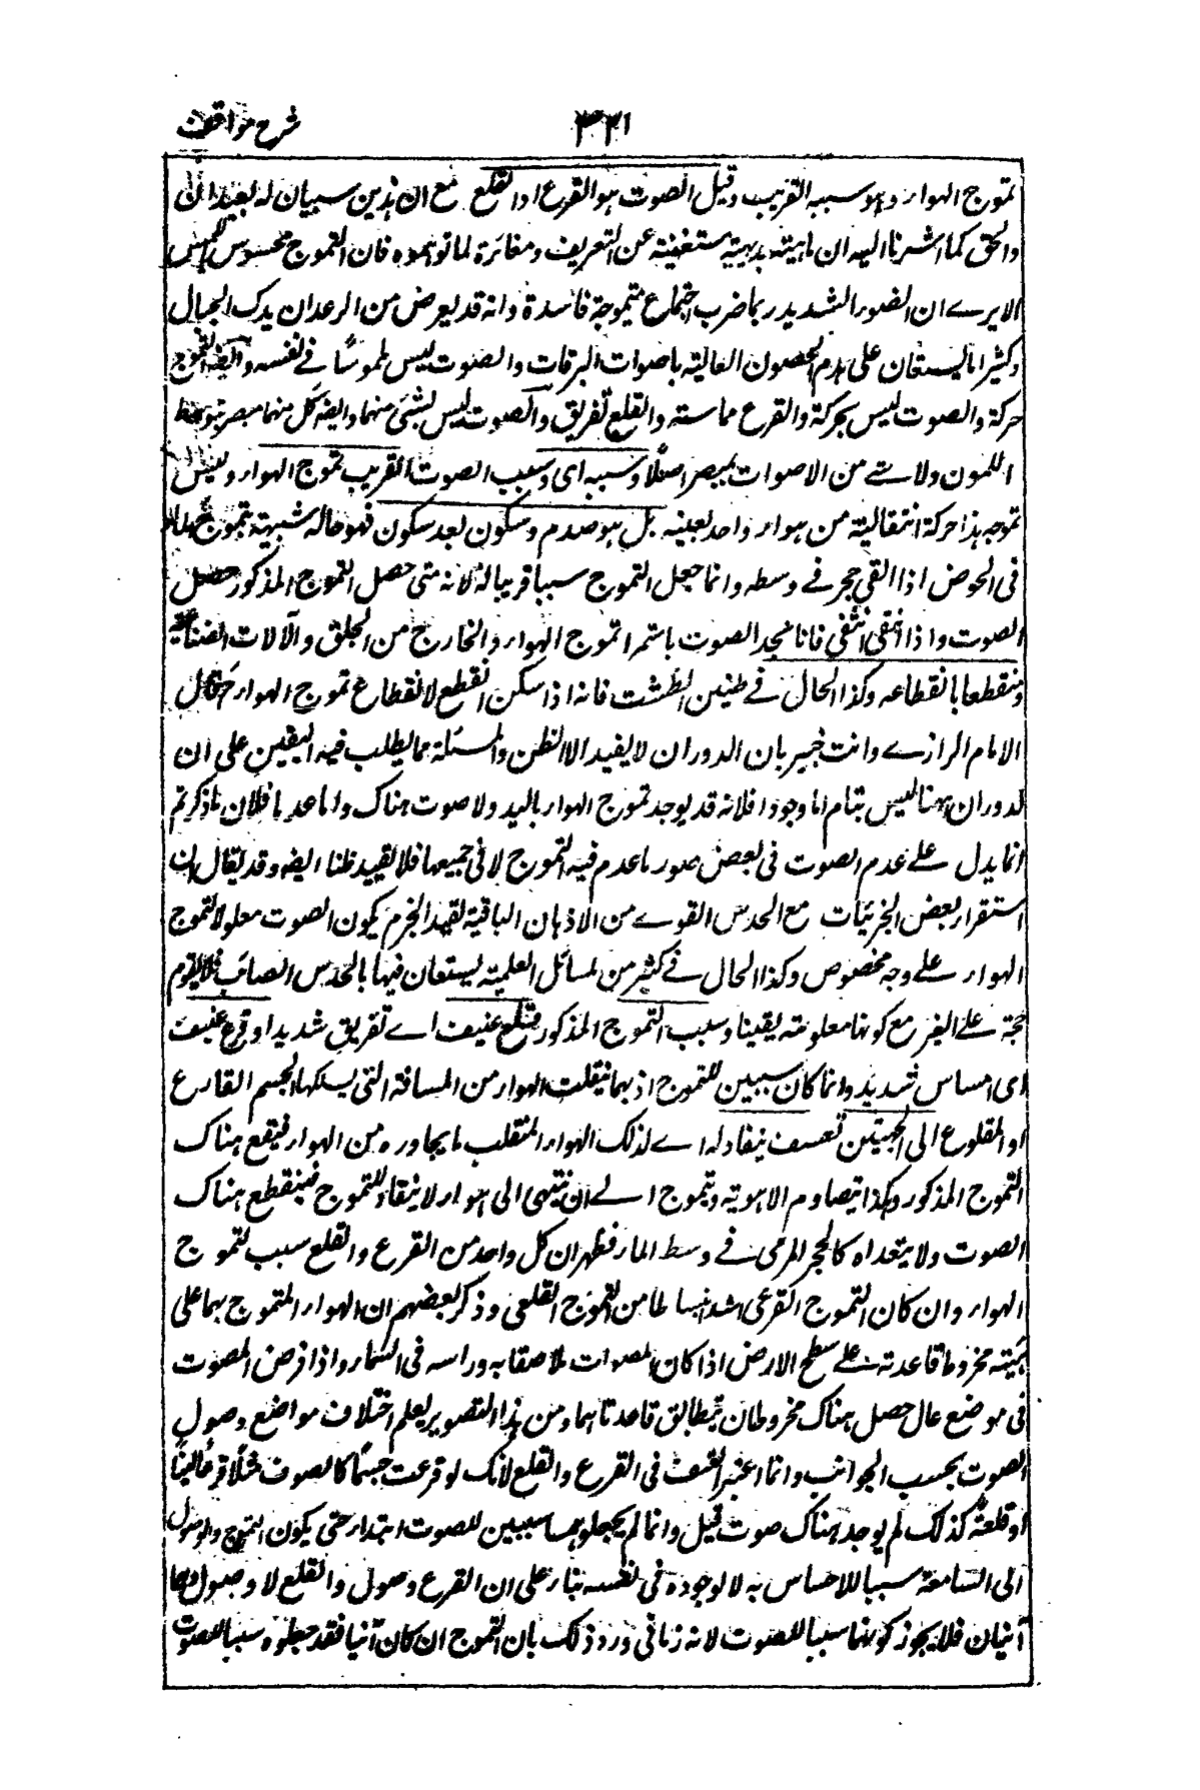 شرح مواقف
٣٢١
تموج الهواء وهو سببه القريب وقيل الصوت هو القرع او القلع مع ان هذين سببان له بعيدان
والحق كما اشرنا اليه ان ماهيته بديهية مستغنية عن التعريف ومغائرة لما توهموه فان التموج محسوس باللمس
الا يرے ان الصوت الشديد ربما ضرب الصماخ بتموجه فافسده وانه قد يعرض من الرعد ان يدك الجبال
وكثيرا ما يستعان على هدم الحصون العالية باصوات البوقات والصوت ليس ملموسًا فے نفسه وايضا التموج
حركة والصوت ليس بحركة والقرع مماسة والقلع تفريق والصوت ليس بشئ منهما وايضا كل منهما مبصر بتوسط
اللون ولا شے من الاصوات بمبصر اصلًا وسببه اى وسبب الصوت القريب تموج الهواء وليس
تموجه هذا حركة انتقالية من هواء واحد بعينه بل هو صدم وسكون بعد سكون فهو حالة شبيهة بتموج الماء
فى الحوض اذا القى حجر فے وسطه وانما جعل التموج سببا قريبا له لانه متى حصل التموج المذكور حصل
الصوت واذا انتفى انتفى فانا نجد الصوت باستمرار تموج الهواء الخارج من الحلق والآلات الصناعية
ومنقطعا بانقطاعه وكذا الحال فے طنين الطشت فانه اذا سكن انقطع لانقطاع تموج الهواء ح قال
الامام الرازے وانت خبير بان الدوران لا يفيد الا الظن والمسئلة مما يطلب فيه اليقين على ان
الدوران ههنا ليس بتام اما وجودا فلانه قد يوجد تموج الهواء باليد ولا صوت هناك واما عدما فلان ما ذكرتم
انما يدل علے عدم الصوت فى بعض صور ما عدم فيه التموج لا فى جميعها فلا يفيد ظنا ايضا وقد يقال ان
استقراء بعض الجزئيات مع الحدس القوے من الاذهان الثاقبة يفيد الجزم بكون الصوت معلولا لتموج
الهواء علے وجه مخصوص وكذا الحال فے كثير من المسائل العلمية يستعان فيها بالحدس الصائب فلا يقوم
حجة علے الغير مع كونها معلومة يقينا وسبب التموج المذكور قلع عنيف اے تفريق شديد او قرع عنيف
اى امساس شديد وانما كانا سببين للتموج اذ بهما ينفلت الهواء من المسافة التى يسلكها الجسم القارع
او المقلوع الى الجنبتين بعنف ينقاد له اے لذلك الهواء المنفلت ما يجاوره من الهواء فيقع هناك
التموج المذكور وهكذا يتصادم الاهوية ويتموج الے ان ينتهى الى هواء لا ينقاد للتموج فينقطع هناك
الصوت ولا يتعداه كالحجر المرمى فے وسط الماء فظهر ان كل واحد من القرع والقلع سبب لتموج
الهواء وان كان التموج القرعى اشد انبساطا من التموج القلعى وذكر بعضهم ان الهواء المتموج بهما على
هيئة مخروط قاعدته علے سطح الارض اذا كان المصوت ملاصقا به وراسه فى السماء واذا فرض المصوت
فى موضع عال حصل هناك مخروطان يتطابق قاعدتاهما ومن هذا التصوير يعلم اختلاف مواضع وصول
الصوت بحسب الجوانب وانما اعتبر العنف فى القرع والقلع لانك لو قرعت جسمًا كالصوف مثلًا قرعًا لينًا
او قلعته كذلك لم يوجد هناك صوت قيل وانما لم يجعلوهما سببين للصوت ابتداء حتى يكون التموج والوصول
الى السامعة سببا للاحساس به لا لوجوده فى نفسه بناء على ان القرع وصول والقلع لا وصول وهما
آنيان فلا يجوز كونهما سببا للصوت لانه زمانى ورد ذلك بان التموج ان كان آنيا فقد جعلوه سببا للصوت